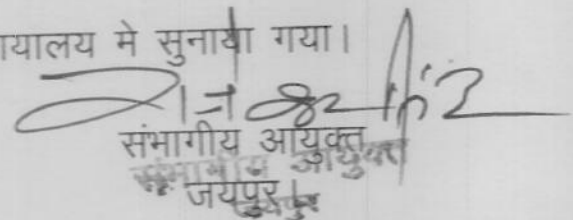 यालय मे सुनाया गया।
संभागीय आयुक्त
संभागीय आयुक्त
जयपुर